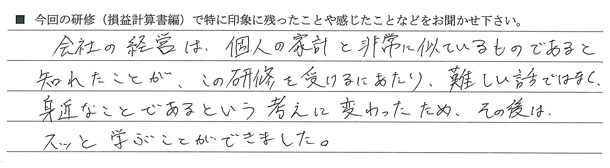 ■ 今回の研修（損益計算書編）で特に印象に残ったことや感じたことなどをお聞かせ下さい。
会社の経営は、個人の家計と非常に似ているものであると
知れたことが、この研修を受けるにあたり、難しい話ではなく、
身近なことであるという考えに変わったため、その後は、
スッと学ぶことができました。